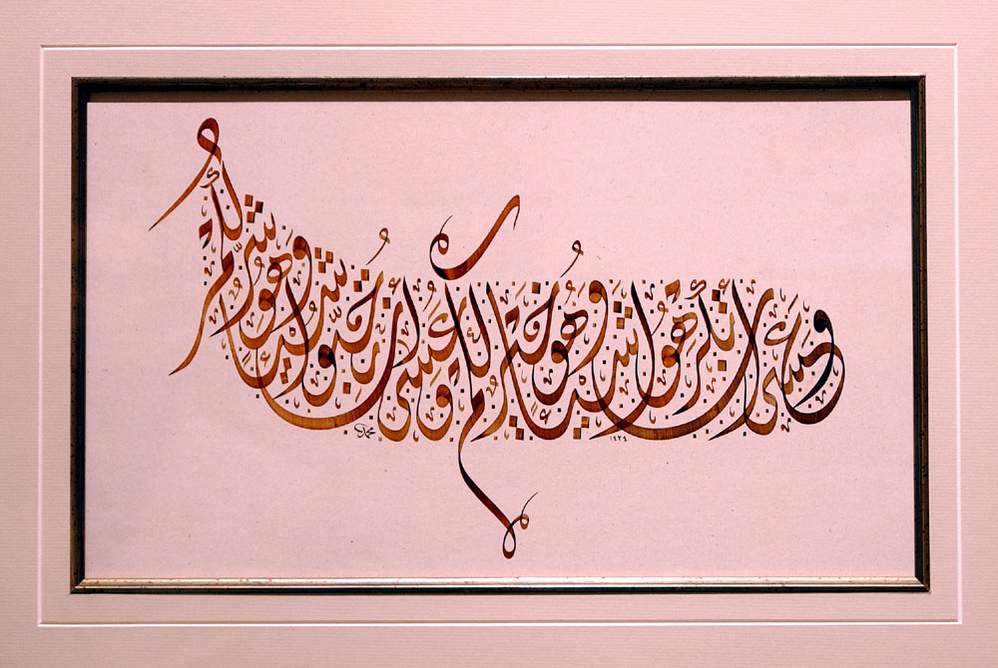 وعسى أن تكرهوا شيئا وهو خير لكم وعسى أن تحبوا شيئا وهو شر لكم
محمد
١٤٢٤